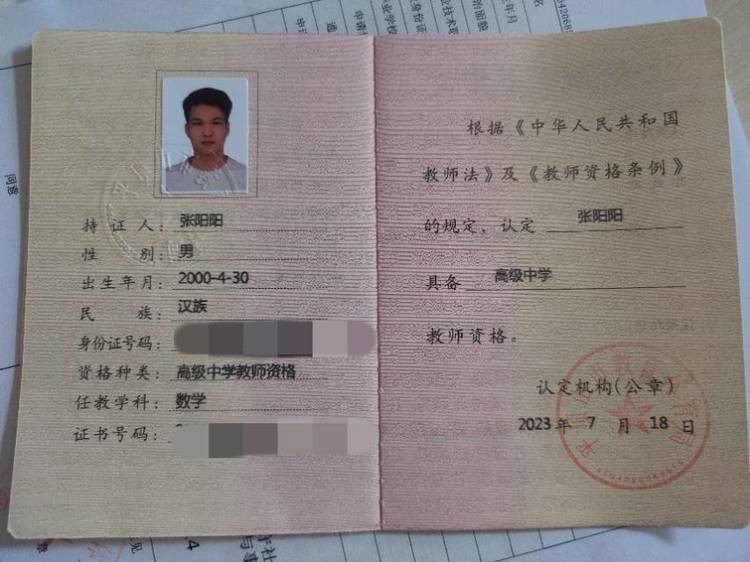 持证人：张阳阳
性别：男
出生年月：2000-4-30
民族：汉族
身份证号码：
资格种类：高级中学教师资格
任教学科：数学
证书号码：
根据《中华人民共和国
教师法》及《教师资格条例》
的规定，认定 张阳阳
具备 高级中学
教师资格。
认定机构(公章)
2023 年 7 月 18 日